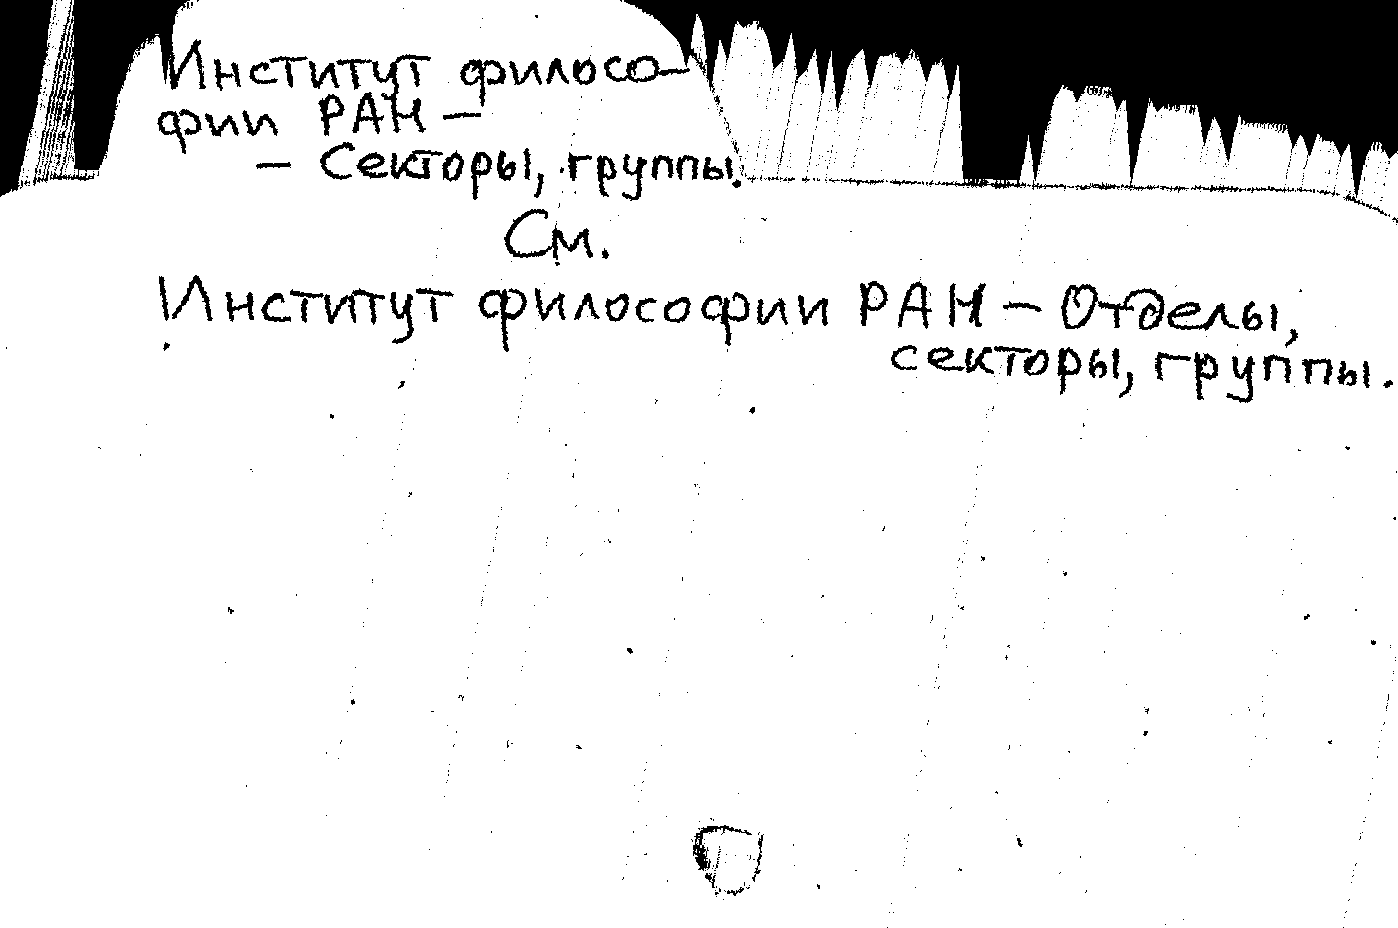 Институт филосо-
фии РАН –
– Секторы, группы.
См.
Институт философии РАН – Отделы,
секторы, группы.